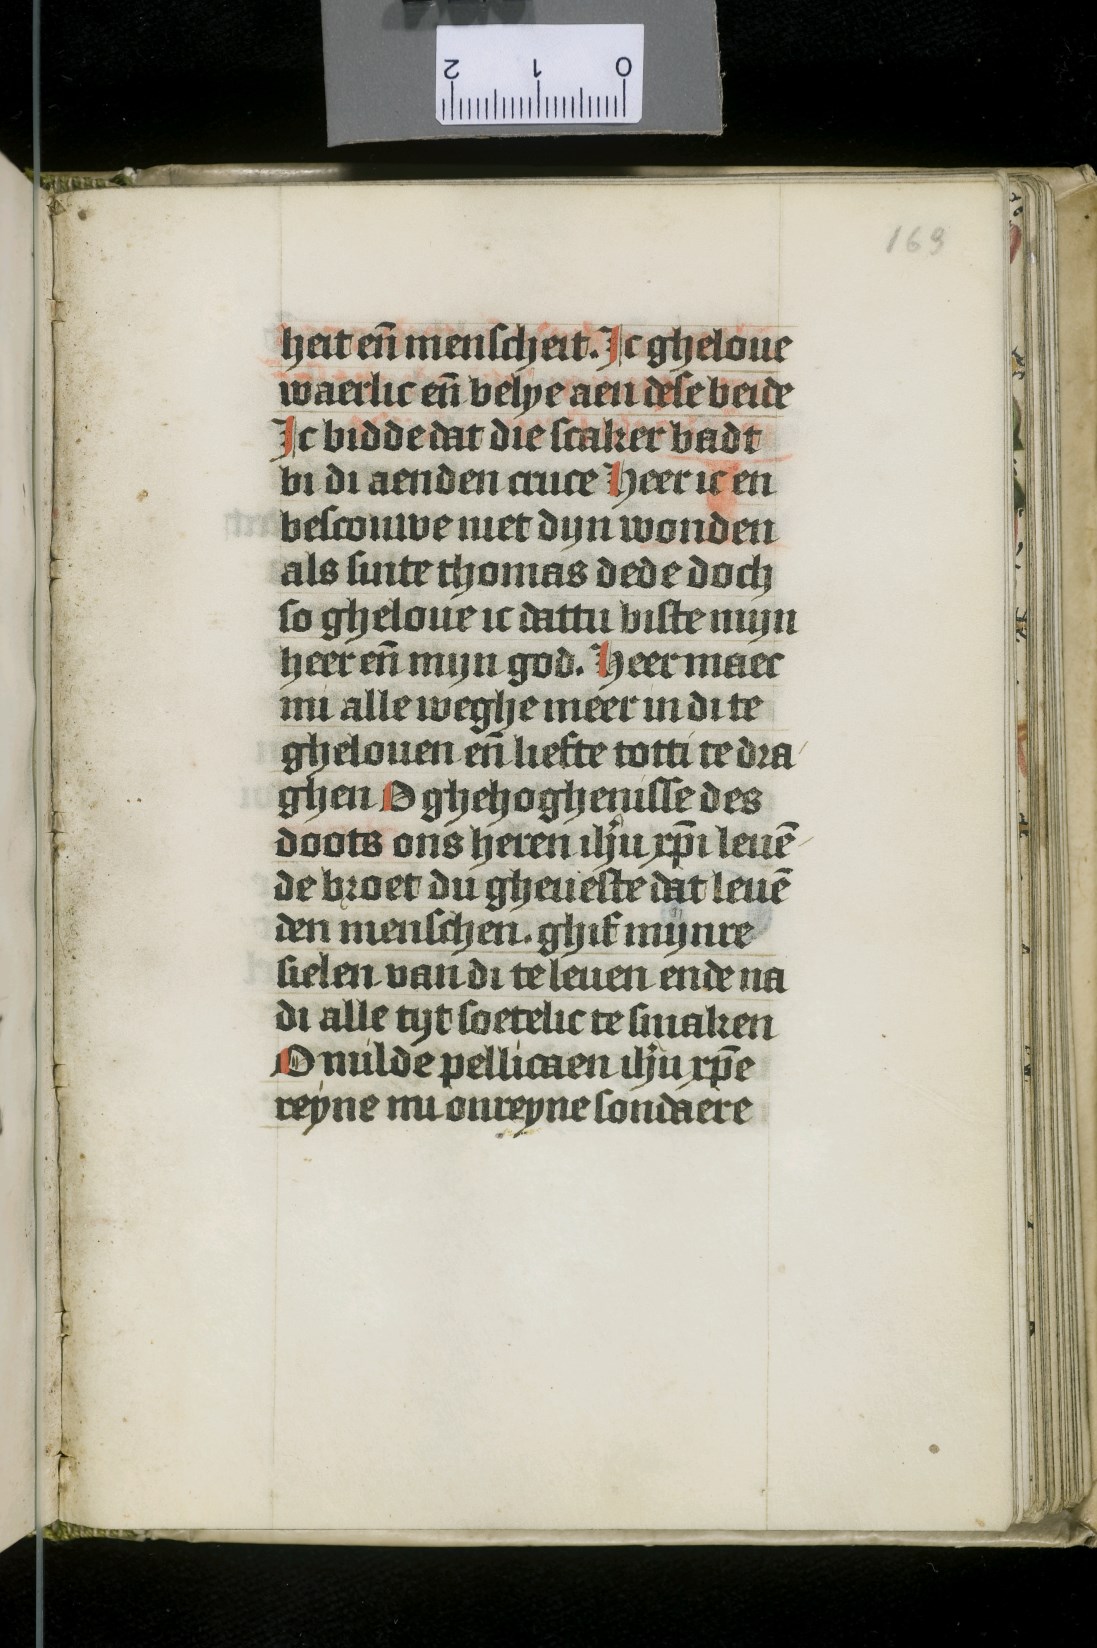 169
heit en̄ menscheit. Ic gheloue
waerlic en̄ belye aen dese beide
Ic bidde dat die scaker badt
bi di aenden cruce Heer ic en
bescouwe niet dijn wonden
als sinte thomas dede doch
so gheloue ic dattu biste mijn
heer en̄ mijn god. Heer maec
mi alle weghe meer in di te
ghelouen en̄ liefte totti te dra
ghen O ghehoghenisse des
doots ons heren ihū xp̄i leuē
de broet du gheueste dat leuē
den menschen. ghif mijnre
sielen van di te leuen ende na
di alle tijt soetelic te smaken
O milde pellicaen ihū xp̄e
reyne mi onreyne sondaere
2 1 0